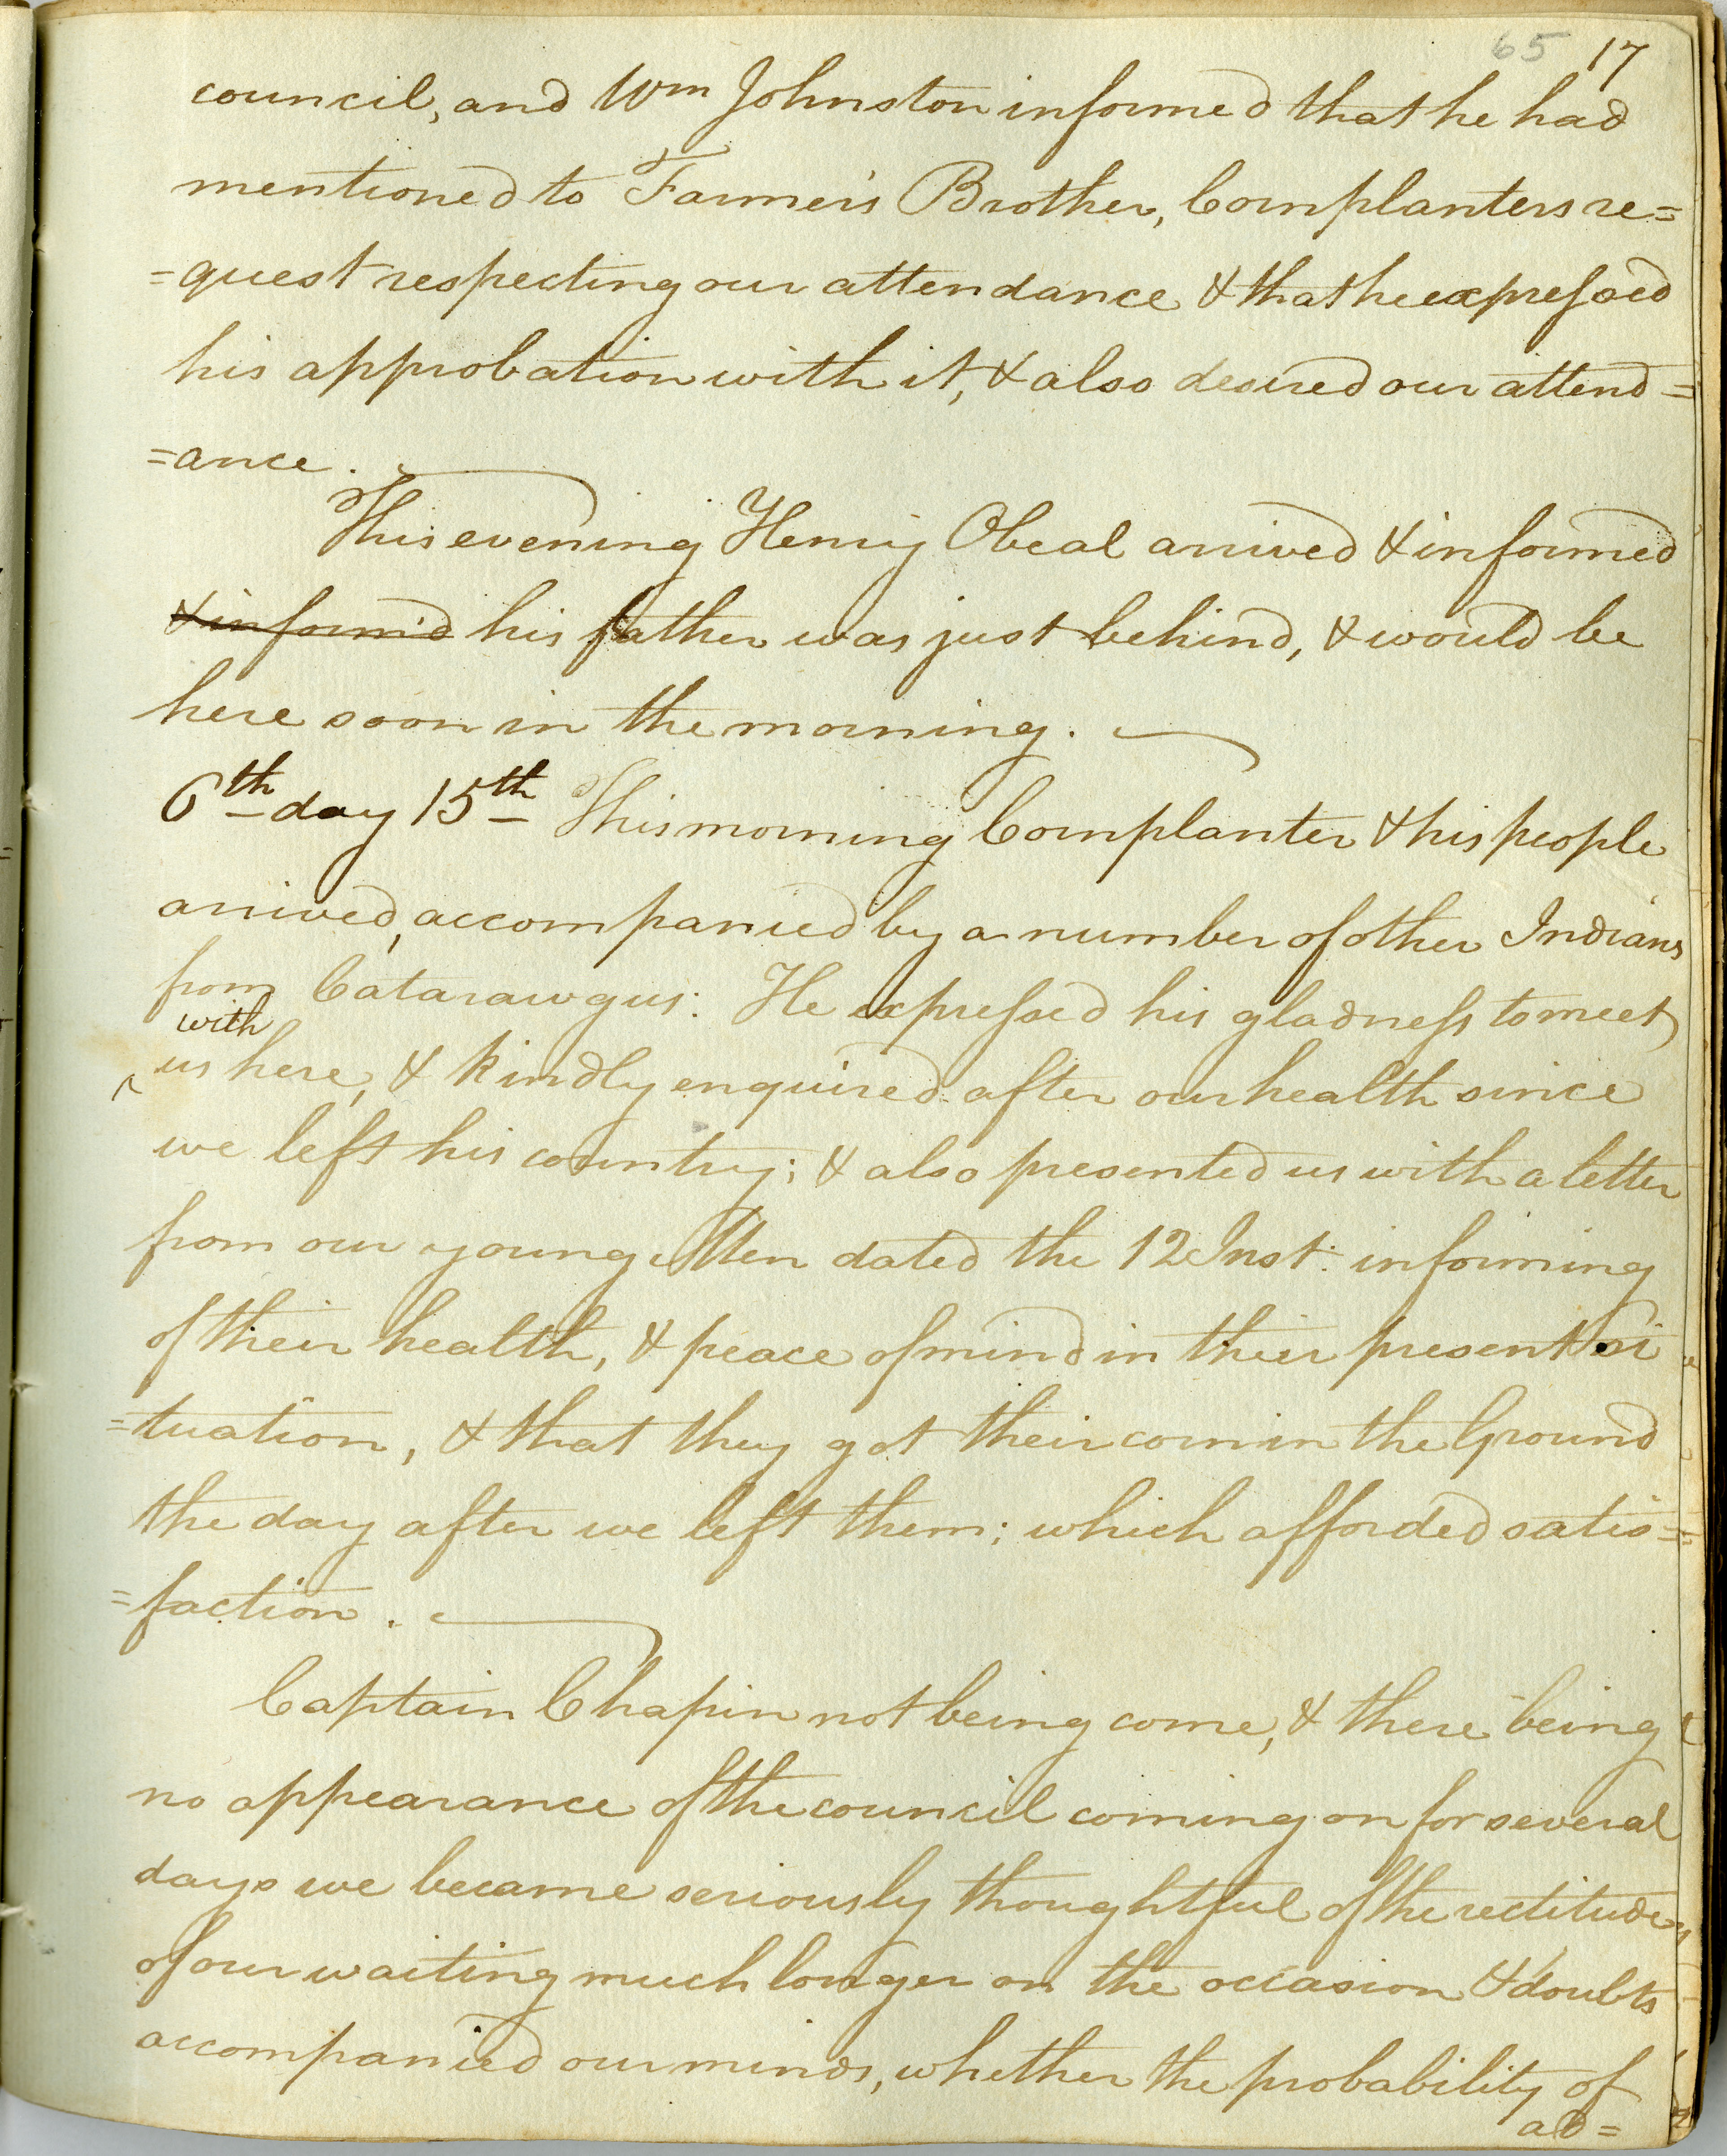 65 17
council, and Wm Johnston informed that he had
mentioned to Farmer's Brother, Cornplanters re=
=quest respecting our attendance & that he expressed
his approbation with it, & also desired our attend=
=ance.
This evening Henry Obeal arrived & informed
& inform'd his father was just behind, & would be
here soon in the morning.
6th day 15th This morning Cornplanter & his people
arrived, accompanied by a number of other Indians
from Catarawgus: He expressed his gladness to meet
with
us here, & kindly enquired after our health since
we left his country; & also presented us with a letter
from our young Men dated the 12 Inst: informing
of their health, & peace of mind in their present si
=tuation, & that they got their corn in the Ground
the day after we left them; which afforded satis=
=faction.
Captain Chapin not being come, & there being
no appearance of the council coming on for several
days we became seriously thoughtful of the rectitude
of our waiting much longer on the occasion & doubts
accompanied our minds, whether the probability of
ad=